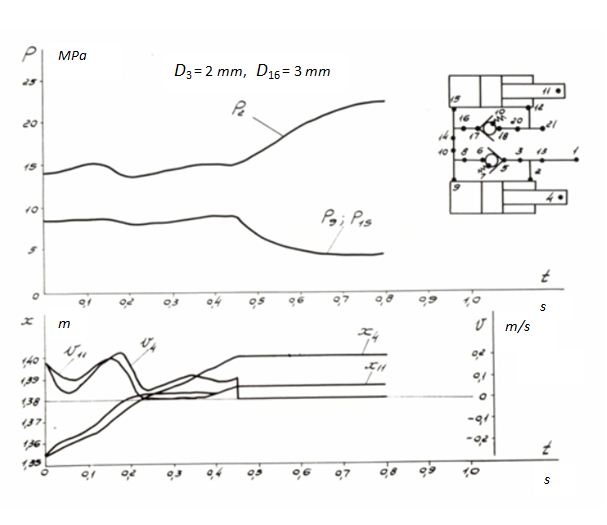 P MPa
D₃ = 2 mm, D₁₆ = 3 mm
25
P₂
15
10
P₉; P₁₅
5
0
0,1 0,2 0,3 0,4 0,5 0,6 0,7 0,8 0,9 1,0
t
s
11
15 12
16 10 20 21
17 18
14
10 8 6 3 13 1
5
7 2
9
4
x m
V m/s
1,40
1,39
1,38
1,37
1,36
1,35
V₁₁ V₄
x₄
x₁₁
0,2
0,1
0
-0,1
-0,2
0 0,1 0,2 0,3 0,4 0,5 0,6 0,7 0,8 0,9 1,0
t
s